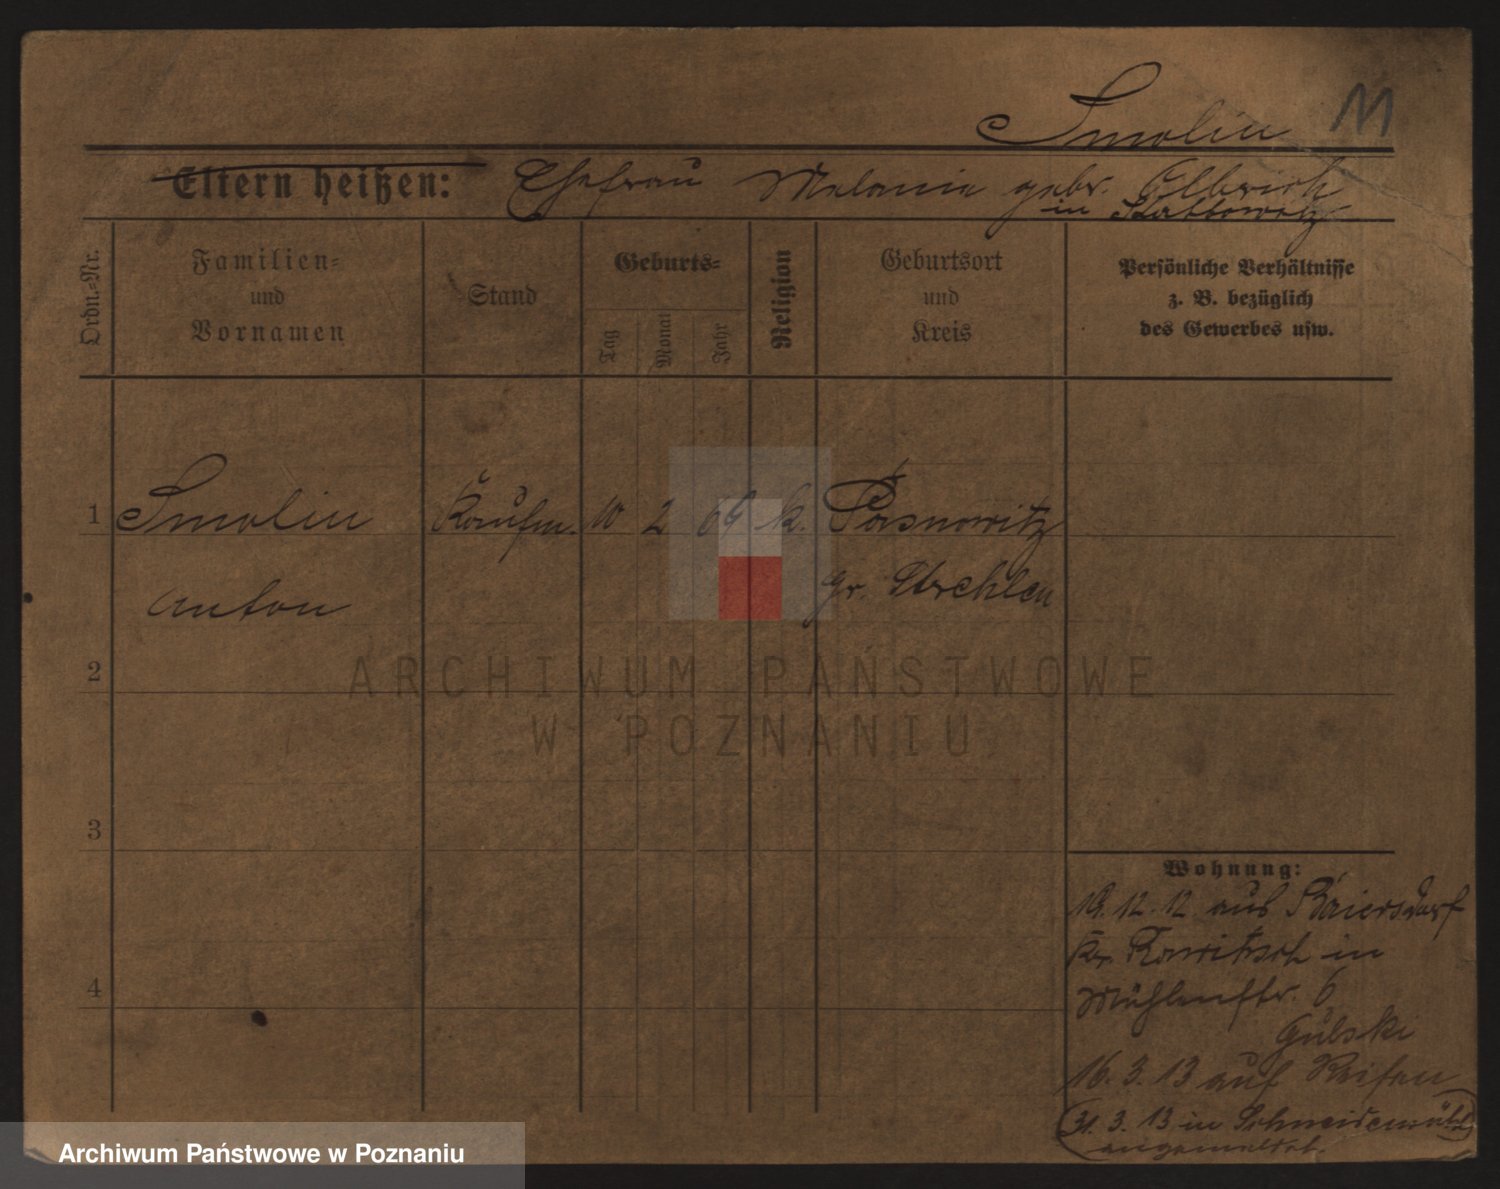 Smolin
Eltern heißen: Ehefrau Melanie gebr. Olbrich
in
Ordn.-Nr.
Familien-
und
Vornamen
Stand
Geburts-
Tag
Monat
Jahr
Religion
Geburtsort
und
Kreis
Persönliche Verhältnisse
z. B. bezüglich
des Gewerbes usw.
1 Smolin Kaufm. 10 2 69 k. Pasnowitz
Anton gr. Strehlen
2
3
4
Wohnung:
19. 12. 12 aus Baiersdorf
Kr. Rawitsch in
Mühlenstr. 6
Gulski
16. 3. 13 auf Reisen
31. 3. 13 in Schneidemühl
angemeldet.
ARCHIWUM PAŃSTWOWE
W POZNANIU
Archiwum Państwowe w Poznaniu